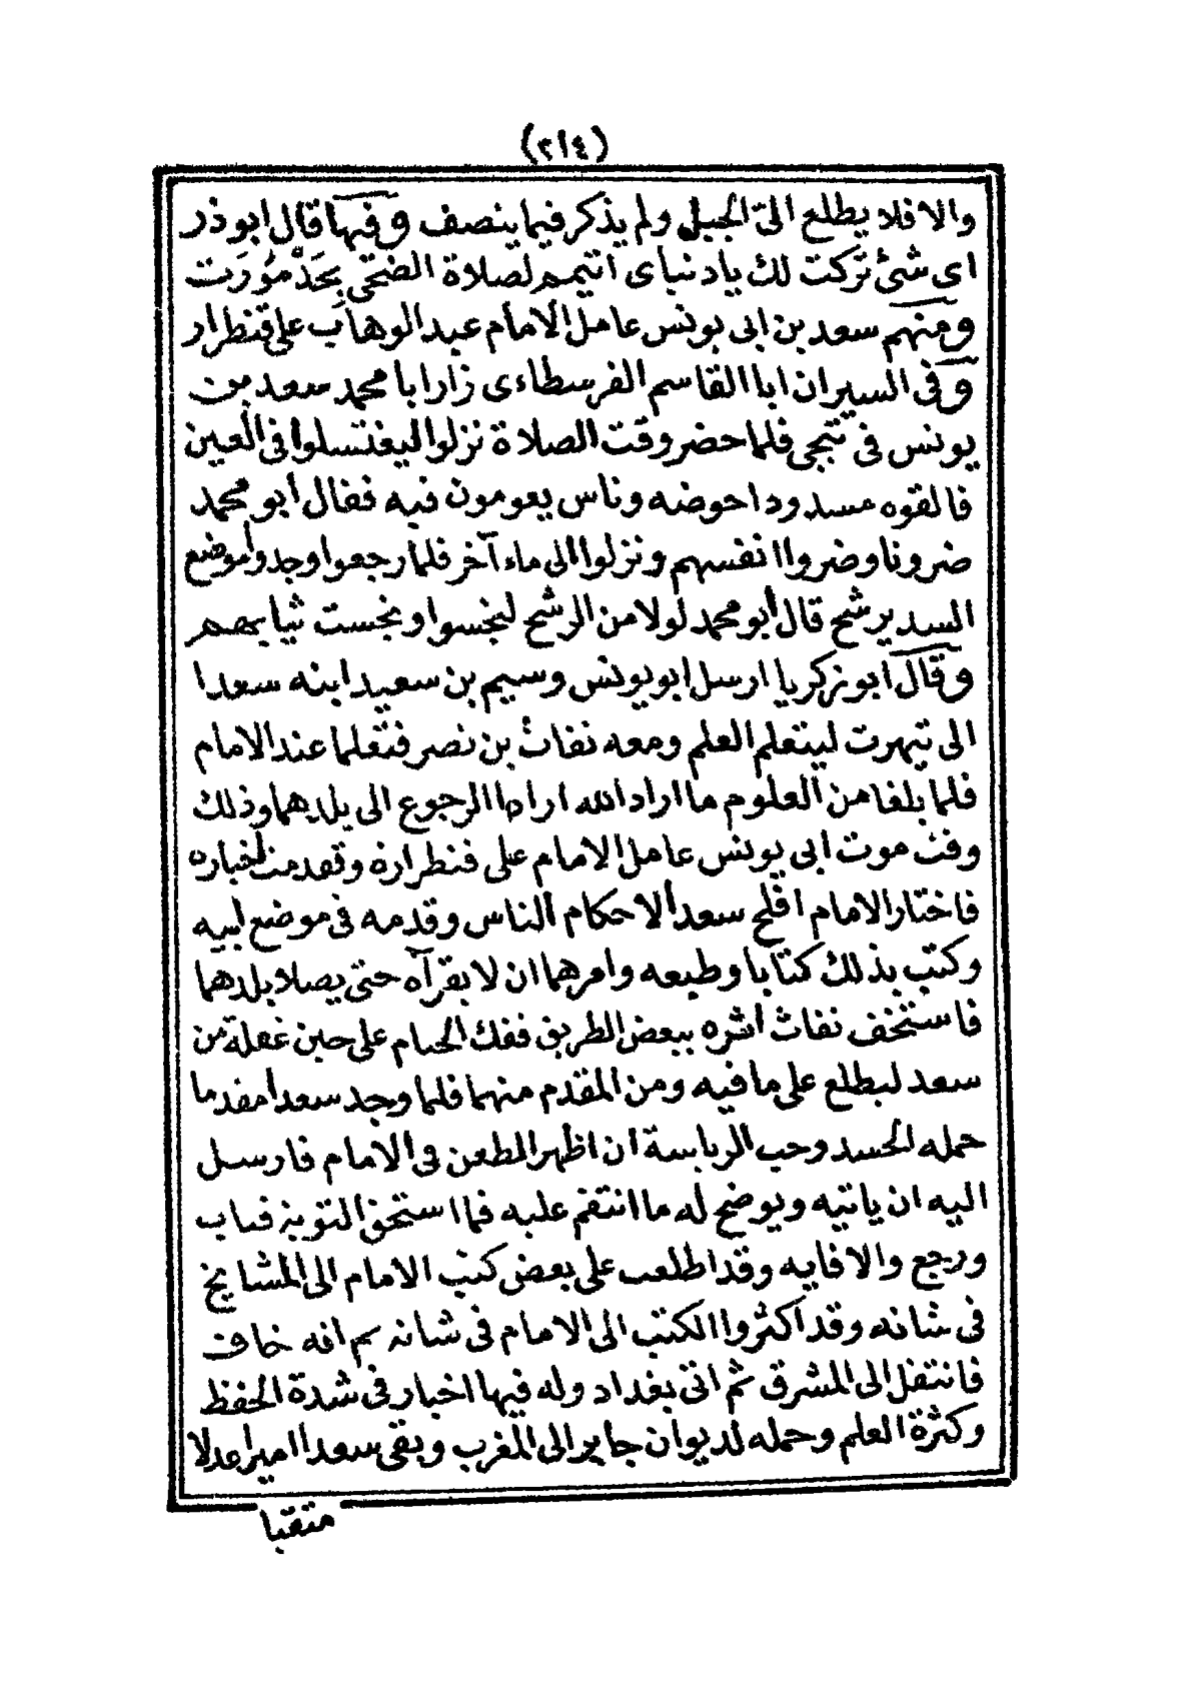 (٢١٤)
والا فلا يطلع الىّ الجبل ولم يذكر فيما ينصف وفيها قال ابو ذر
اى شئ تركت لك يا دنياى اتيمم لصلاة الضحى بحَذْ مؤرَت
ومنهم سعد بن ابى يونس عامل الامام عبد الوهاب على قنطرار
وفى السير ان ابا القاسم الفرسطاءى زار ابا محمد سعد بن
يونس فى تيجى فلما حضر وقت الصلاة نزلوا ليغتسلوا فى العين
فالقوه مسدودا حوضه وناس يعومون فيه فقال أبو محمد
ضرونا وضروا انفسهم ونزلوا الى ماء آخر فلما رجعوا وجدوا موضع
السد يرشح قال أبو محمد لولا من الرشح لنجسوا ونجست ثيابهم
وقال ابو زكريا ارسل ابو يونس وسيم بن سعيد ابنه سعدا
الى تيهرت ليتعلم العلم ومعه نفاث بن نصر فتعلما عند الامام
فلما بلغا من العلوم ما اراد الله ارادا الرجوع الى بلدهما وذلك
وقت موت ابى يونس عامل الامام على قنطراره وتقدمت اخباره
فاختار الامام افلح سعدا لاحكام الناس وقدمه فى موضع ابيه
وكتب بذلك كتابا وطبعه وامرهما ان لا يقرآه حتى يصلا بلدهما
فاستخف نفاث أشره ببعض الطريق ففك الختام على حين غفلة من
سعد ليطلع على ما فيه ومن المقدم منهما فلما وجد سعدا مقدما
حمله الحسد وحب الرياسة ان اظهر المطعن فى الامام فارسل
اليه ان ياتيه ويوضح له ما انتقم عليه فما استحق التوبة فتاب
ورجع والا فايه وقد اطلعت على بعض كتب الامام الى المشايخ
فى شانه وقد اكثروا الكتب الى الامام فى شانه ثم انه خاف
فانتقل الى المشرق ثم اتى بغداد وله فيها اخبار فى شدة الحفظ
وكثرة العلم وحمله لديوان جابر الى المغرب وبقى سعدا اميرا عدلا
متقيا